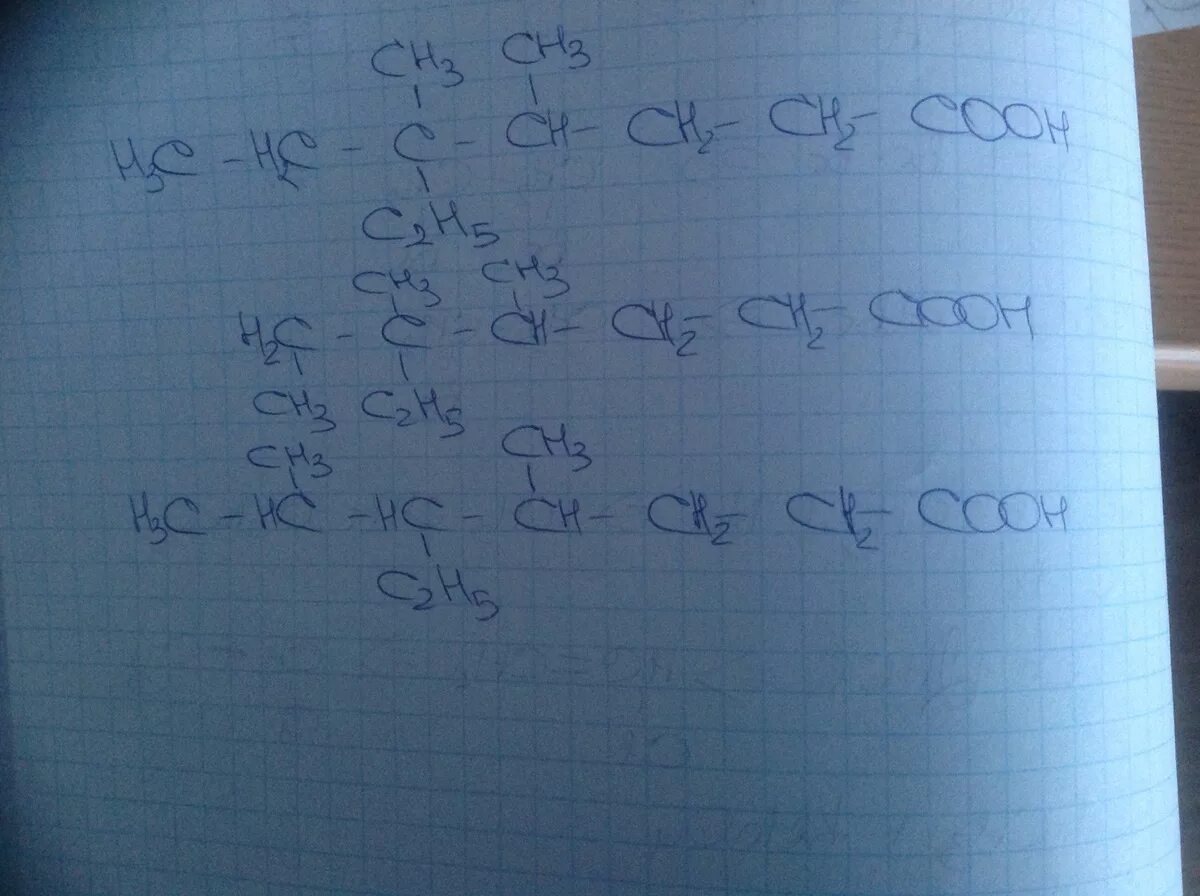 CH3 CH3
H3C - H2C - C - CH - CH2 - CH2 - COOH
C2H5
CH3 CH3
H2C - C - CH - CH2 - CH2 - COOH
CH3 C2H5
CH3 CH3
H3C - HC - HC - CH - CH2 - CH2 - COOH
C2H5